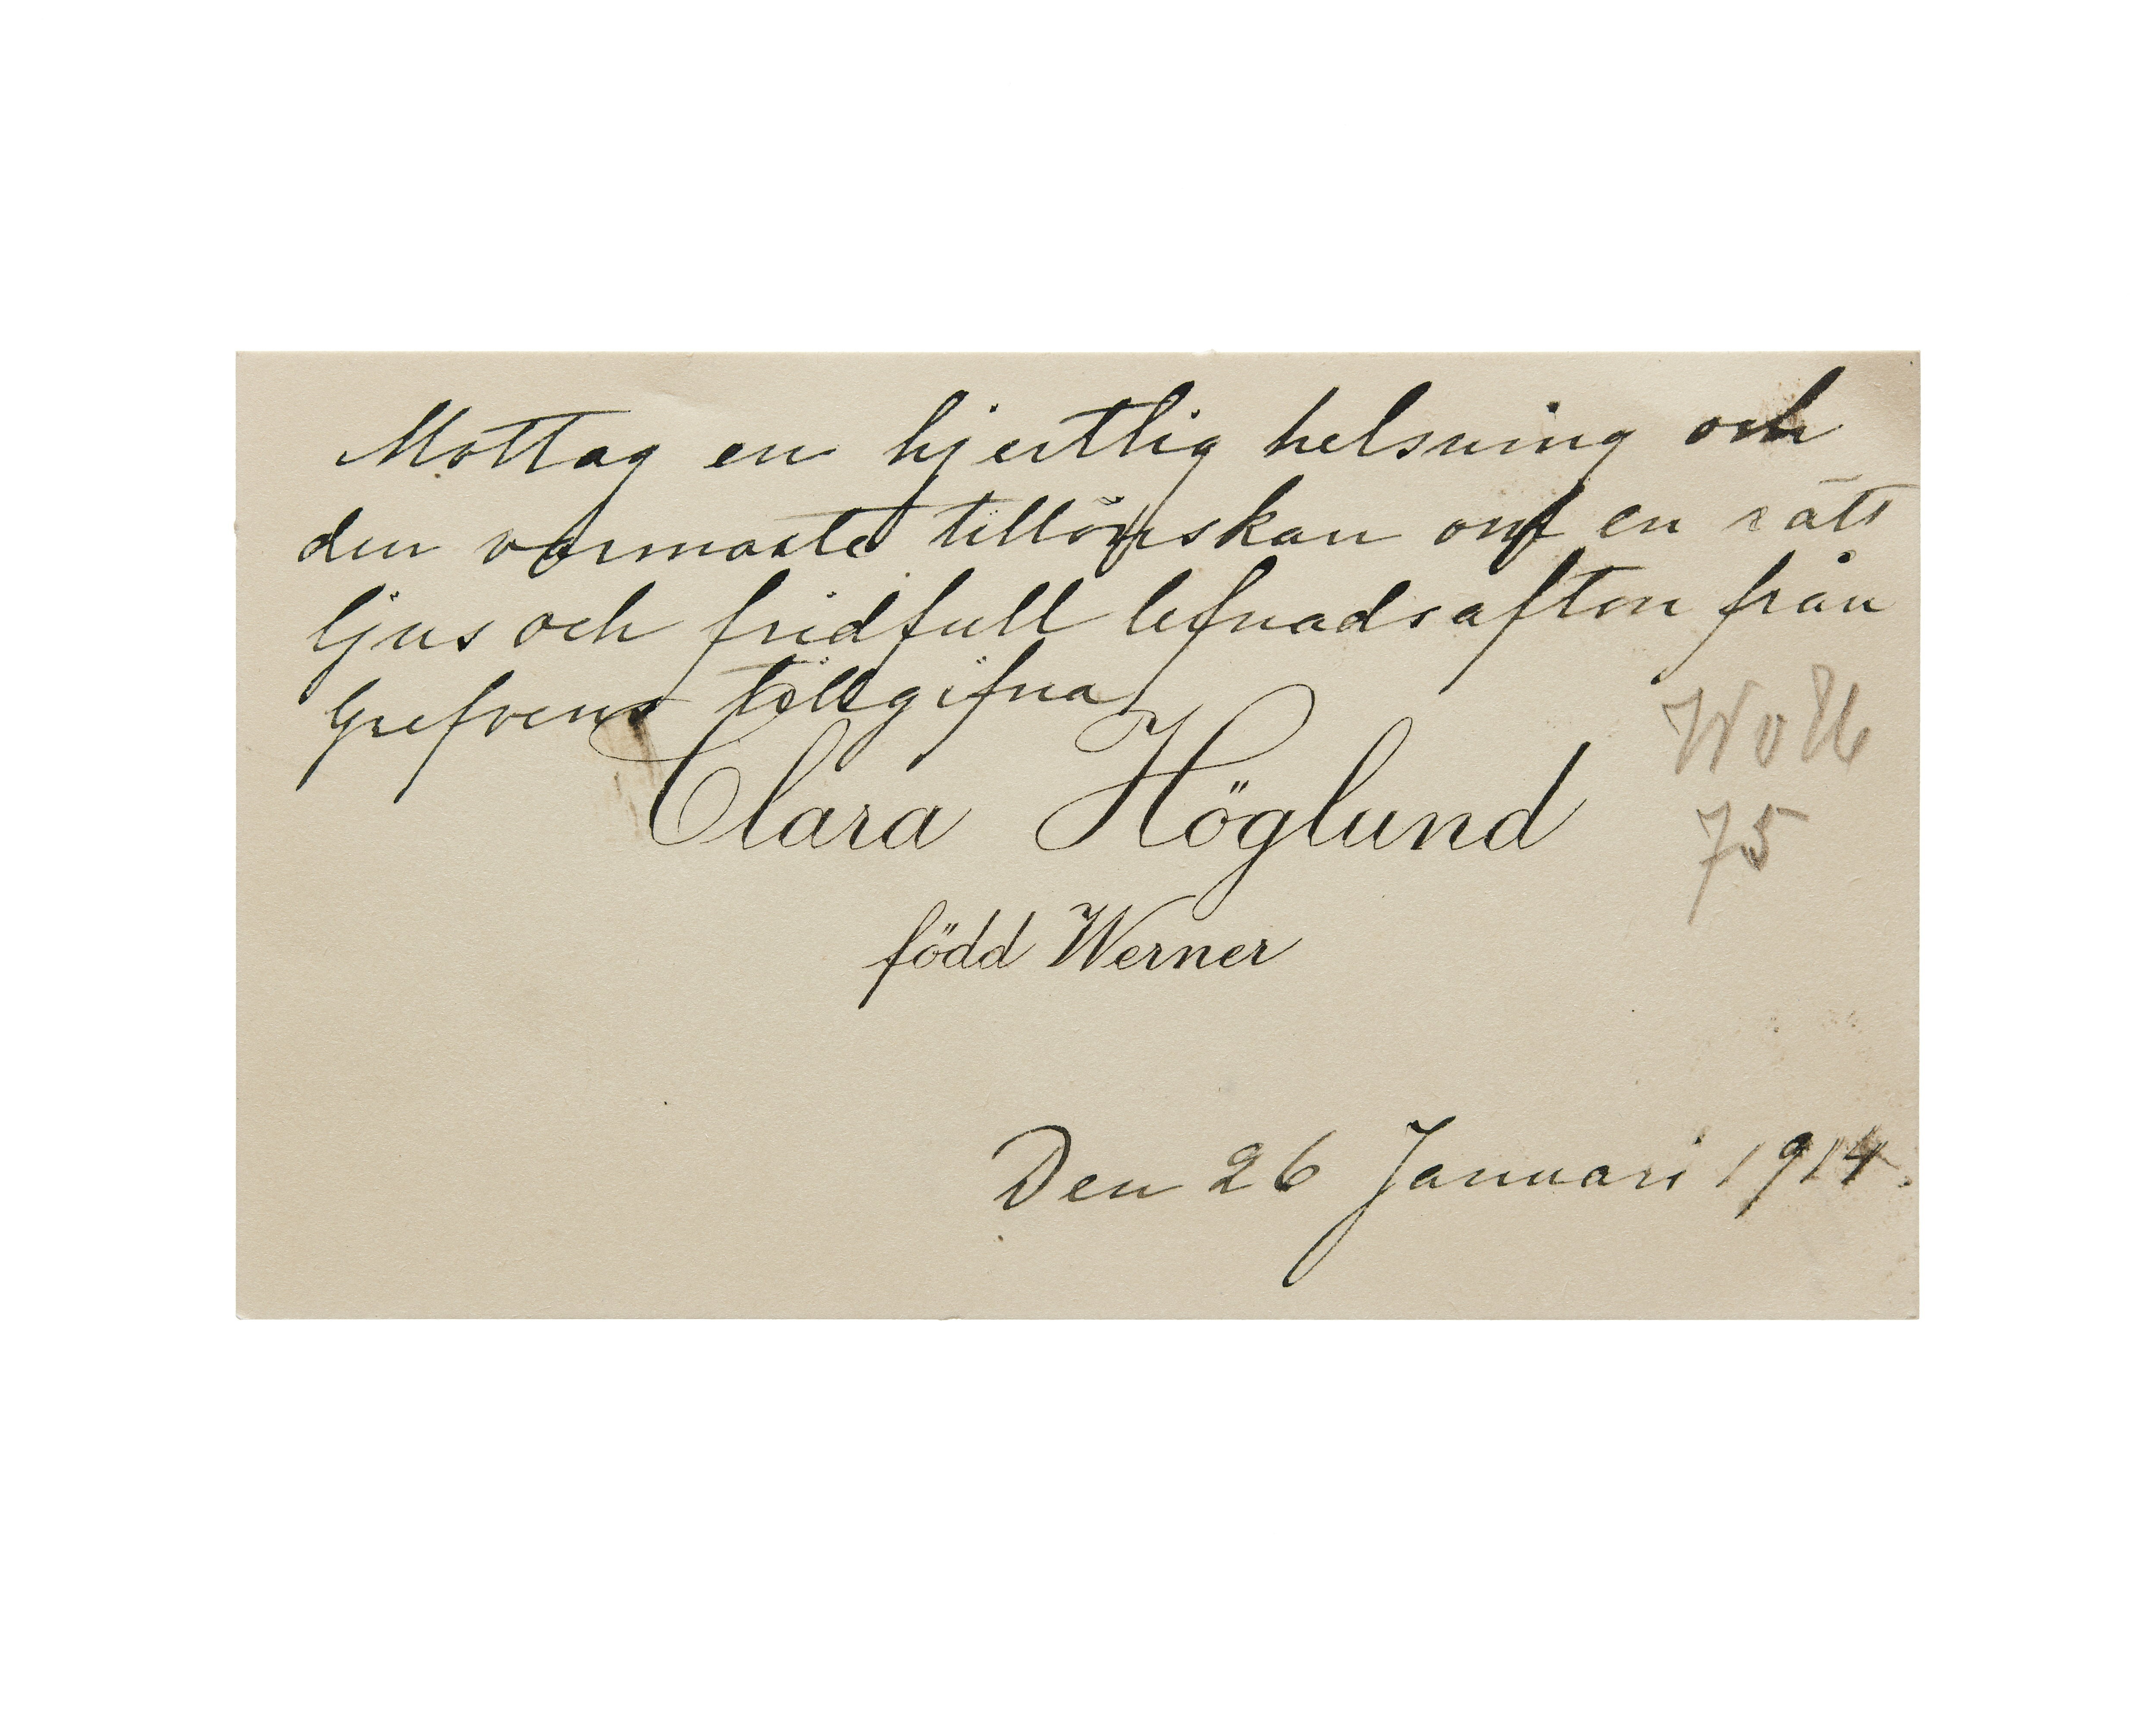 Mottag en hjertlig helsning och
den varmaste tillönskan om en rätt
ljus och fridfull lefnadsafton från
Grefvens tillgifna
Clara Höglund
född Werner
75
Den 26 Januari 1914.